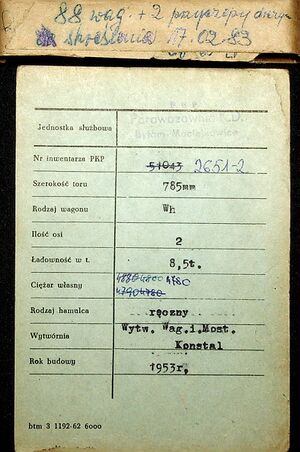 88 wag. + 2 przyczepy
skreślenia 17.02.83
P K P
Parowozownia K.D.
Bytom Maciejkowice
Jednostka służbowa
Nr inwentarza PKP 51043 2651-2
Szerokość toru 785mm
Rodzaj wagonu Wh
Ilość osi 2
Ładowność w t. 8,5t.
4880 4800 4780
Ciężar własny
4790 4780
Rodzaj hamulca ręczny
Wytw. Wag.i.Most.
Wytwórnia
Konstal
Rok budowy 1953r,
btm 3 1192-62 6000